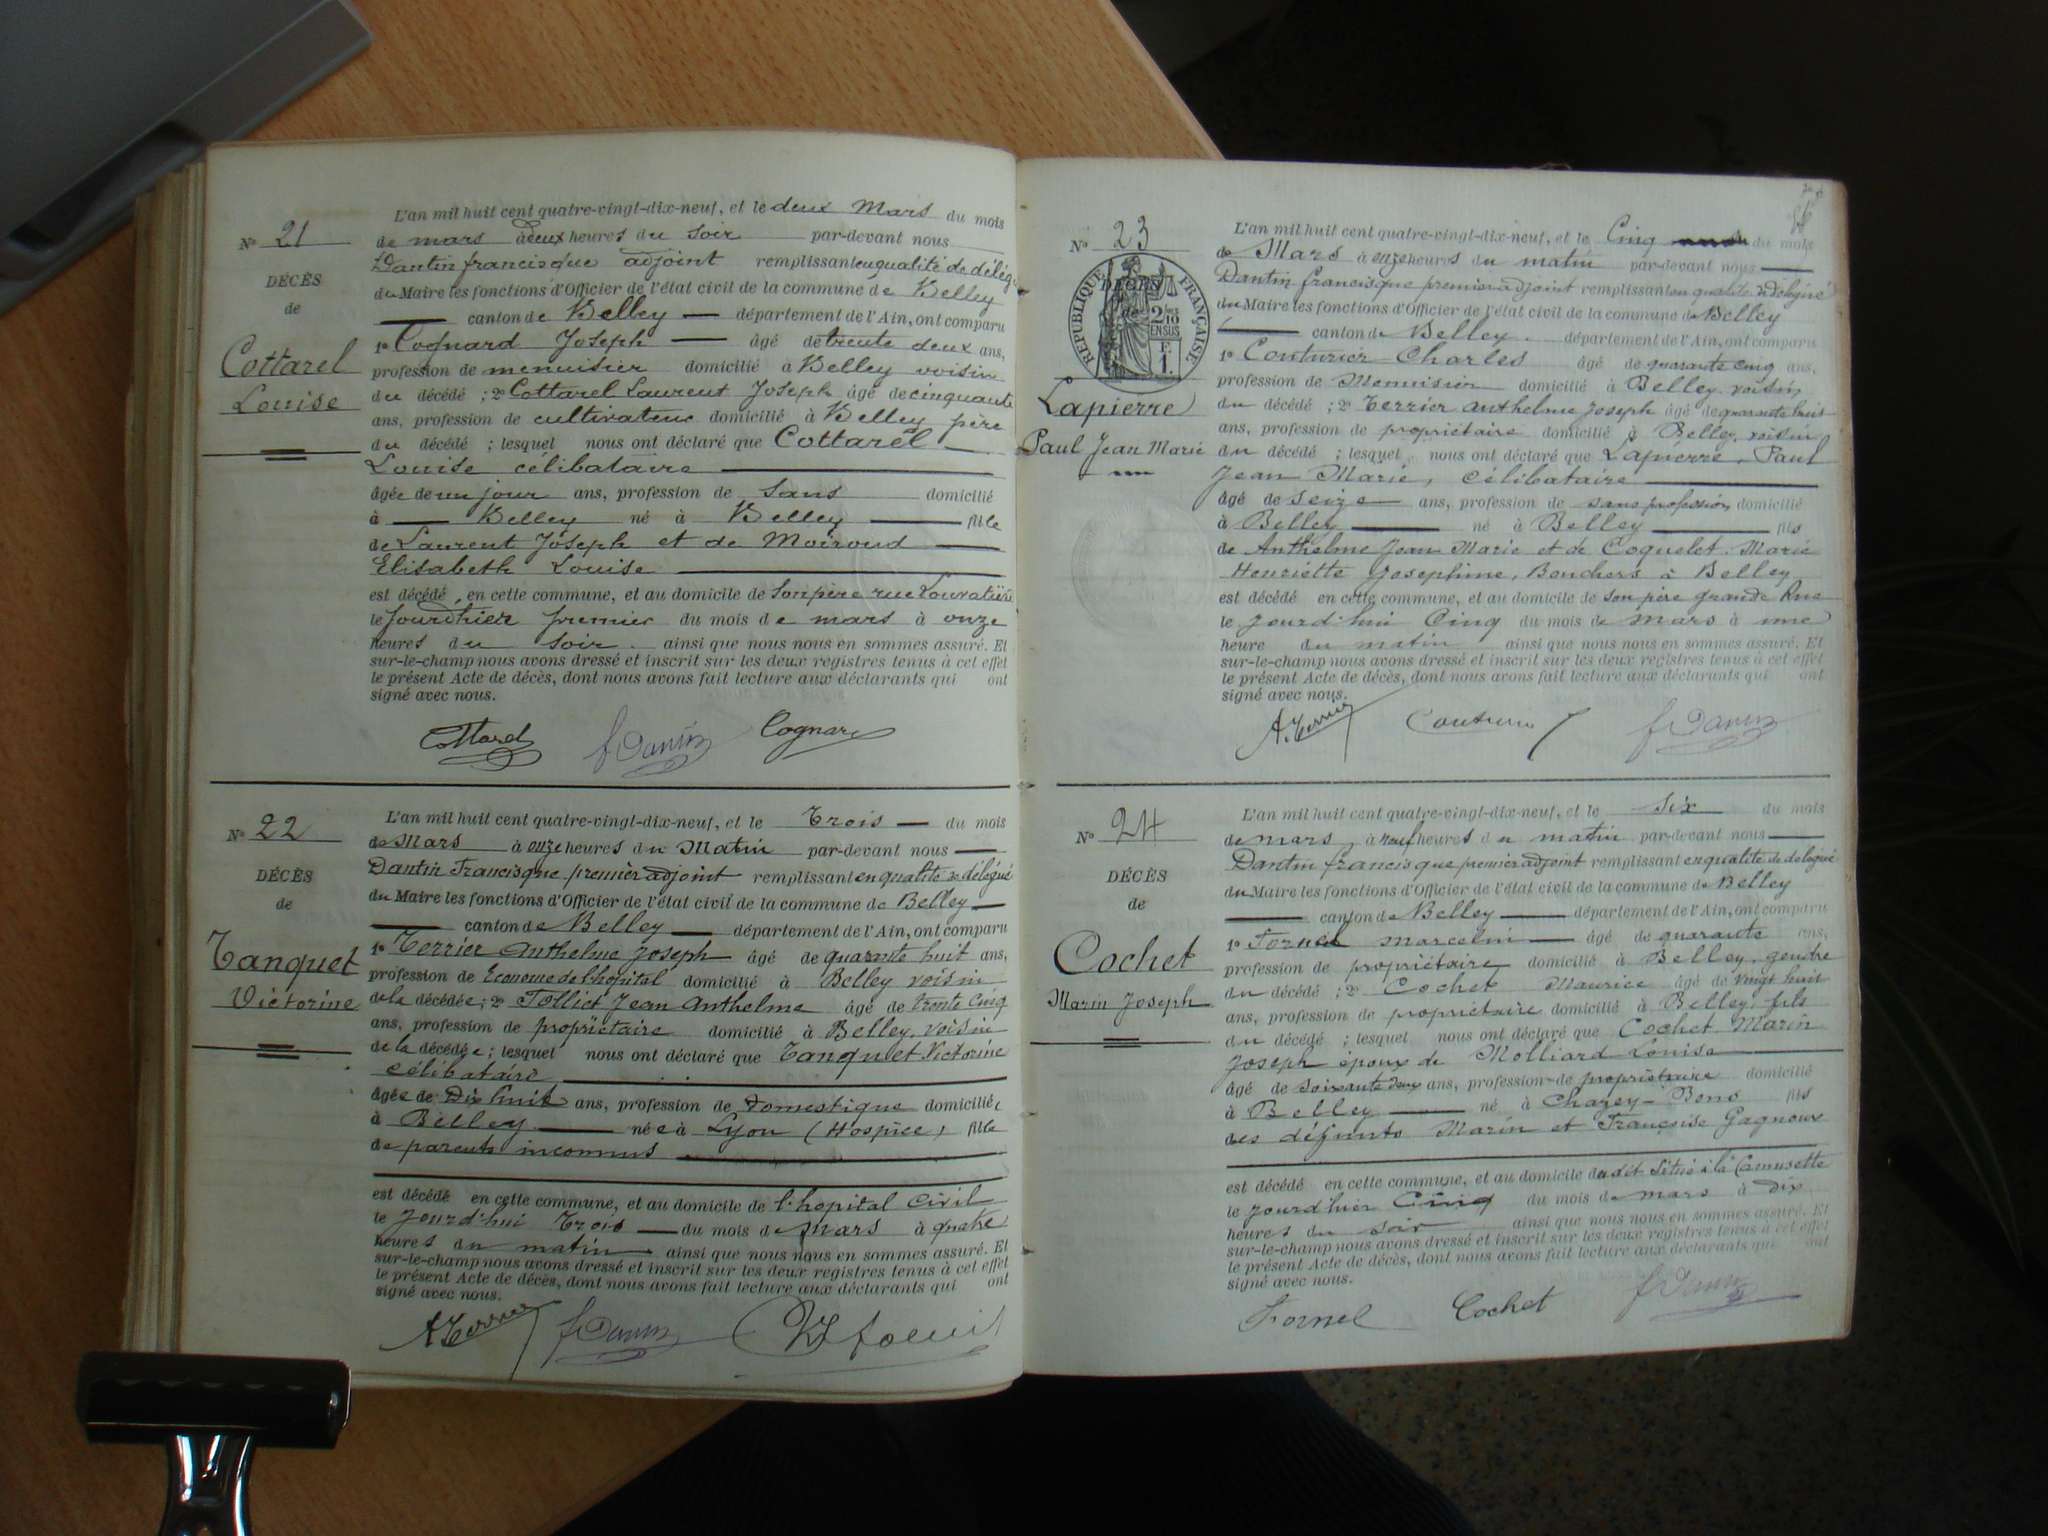 L'an mil huit cent quatre-vingt-dix-neuf, et le deux Mars du mois
N° 21
de mars à deux heures du soir par-devant nous
Dantin francisque adjoint remplissant en qualité de délég.
DÉCÈS
de
Cottarel
Louise
du Maire les fonctions d'Officier de l'état civil de la commune de Belley
canton de Belley département de l'Ain, ont comparu
1° Cognard Joseph âgé de trente deux ans,
profession de menuisier domicilié à Belley voisin
du décédé ; 2° Cottarel Laurent Joseph âgé de cinquante
ans, profession de cultivateur domicilié à Belley père
du décédé ; lesquel nous ont déclaré que Cottarel
Louise célibataire
âgée de un jour ans, profession de sans domicilié
à Belley né à Belley fille
de Laurent Joseph et de Moiroud
Elisabeth Louise
est décédé en cette commune, et au domicile de son père rue
le jourd'hier premier du mois de mars à onze
heures du soir ainsi que nous nous en sommes assuré. Et
sur-le-champ nous avons dressé et inscrit sur les deux registres tenus à cet effet
le présent Acte de décès, dont nous avons fait lecture aux déclarants qui ont
signé avec nous.
Cottarel f Dantin Cognard
L'an mil huit cent quatre-vingt-dix-neuf, et le Trois du mois
N° 22
de Mars à onze heures du Matin par-devant nous
Dantin Francisque premier adjoint remplissant en qualité de délégué
DÉCÈS
de
Tanquet
Victorine
du Maire les fonctions d'Officier de l'état civil de la commune de Belley
canton de Belley département de l'Ain, ont comparu
1° Terrier Anthelme Joseph âgé de quarante huit ans,
profession de Econome de l'hopital domicilié à Belley voisin
de la décédée ; 2° Tolliet Jean Anthelme âgé de trente cinq
ans, profession de propriétaire domicilié à Belley, voisin
de la décédée ; lesquel nous ont déclaré que Tanquet Victorine
célibataire
âgée de Dix huit ans, profession de Domestique domicilié,
à Belley née à Lyon (Hospice) fille
de parents inconnus
est décédé en cette commune, et au domicile de l'hopital civil
le jourd'hui trois du mois de mars à quatre
heures du matin ainsi que nous nous en sommes assuré. Et
sur-le-champ nous avons dressé et inscrit sur les deux registres tenus à cet effet
le présent Acte de décès, dont nous avons fait lecture aux déclarants qui ont
signé avec nous.
A. Terrier f Dantin
L'an mil huit cent quatre-vingt-dix-neuf, et le Cinq du mois
N° 23
de Mars à onze heures du matin par-devant nous
Dantin francisque premier adjoint remplissant en qualité de délégué
DÉCÈS
de
RÉPUBLIQUE FRANÇAISE
2/10
EN SUS
F
1.
Lapierre
Paul Jean Marie
du Maire les fonctions d'Officier de l'état civil de la commune de Belley
canton de Belley département de l'Ain, ont comparu
1° Couturier Charles âgé de quarante cinq ans,
profession de Menuisier domicilié à Belley voisin
du décédé ; 2° Terrier Anthelme Joseph âgé de quarante huit
ans, profession de propriétaire domicilié à Belley, voisin
du décédé ; lesquel nous ont déclaré que Lapierre, Paul
Jean Marie, célibataire
âgé de seize ans, profession de sans profession domicilié
à Belley né à Belley fils
de Anthelme Jean Marie et de Coquelet Marie
Henriette Josephine, Bouchers à Belley
est décédé en cette commune, et au domicile de son père grande Rue
le jourd'hui Cinq du mois de mars à une
heure du matin ainsi que nous nous en sommes assuré. Et
sur-le-champ nous avons dressé et inscrit sur les deux registres tenus à cet effet
le présent Acte de décès, dont nous avons fait lecture aux déclarants qui ont
signé avec nous.
A. Terrier Couturier f Dantin
L'an mil huit cent quatre-vingt-dix-neuf, et le Six du mois
N° 24
de mars à neuf heures du matin par-devant nous
Dantin francisque premier adjoint remplissant en qualité de délégué
DÉCÈS
de
Cochet
Marin Joseph
du Maire les fonctions d'Officier de l'état civil de la commune de Belley
canton de Belley département de l'Ain, ont comparu
1° Fornel marcelin âgé de quarante ans,
profession de propriétaire domicilié à Belley, gendre
du décédé ; 2° Cochet Maurice âgé de vingt huit
ans, profession de propriétaire domicilié à Belley, fils
du décédé ; lesquel nous ont déclaré que Cochet Marin
Joseph époux de Molliard Louise
âgé de soixante deux ans, profession de propriétaire domicilié
à Belley né à Chazey-Bons fils
des défunts Marin et Françoise Gagneux
est décédé en cette commune, et au domicile dudit situé à la Camusette
le jourd'hier Cinq du mois de mars à dix
heures du soir ainsi que nous nous en sommes assuré. Et
sur-le-champ nous avons dressé et inscrit sur les deux registres tenus à cet effet
le présent Acte de décès, dont nous avons fait lecture aux déclarants que ont
signé avec nous.
Fornel Cochet f Dantin